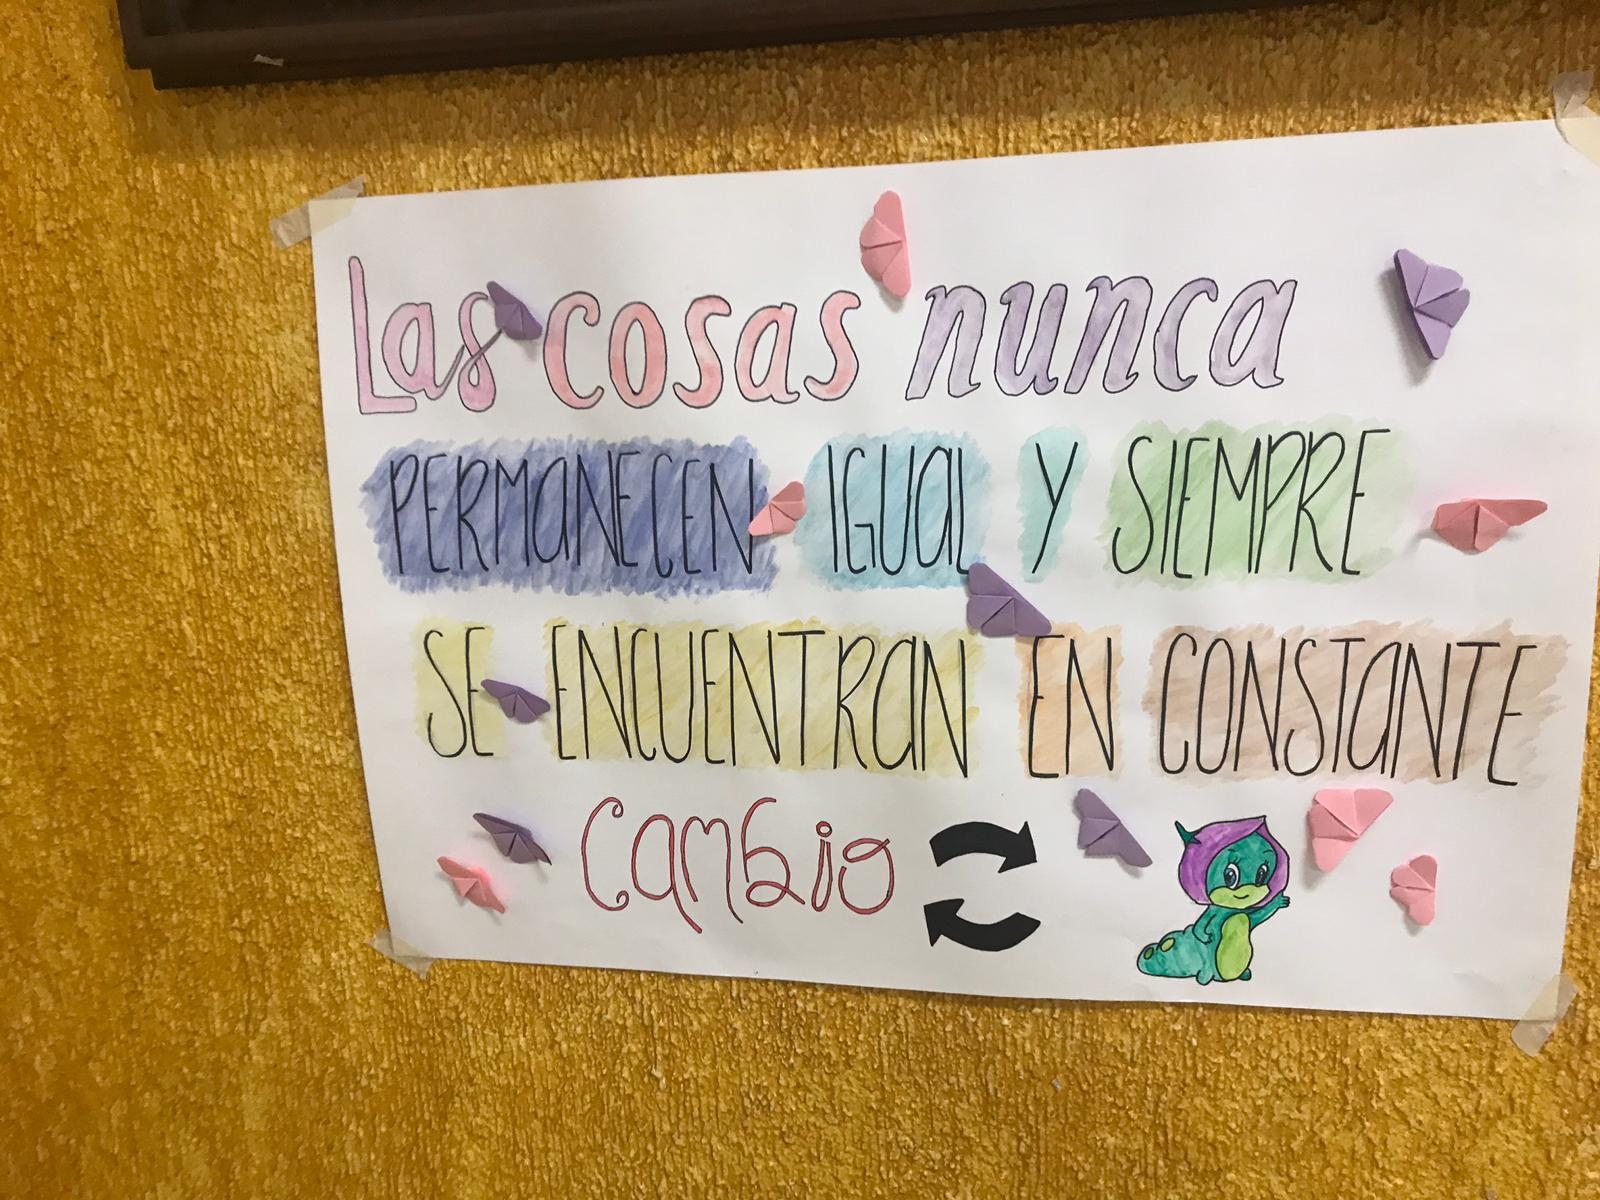 Las cosas nunca
PERMANECEN IGUAL Y SIEMPRE
SE ENCUENTRAN EN CONSTANTE
Cambio